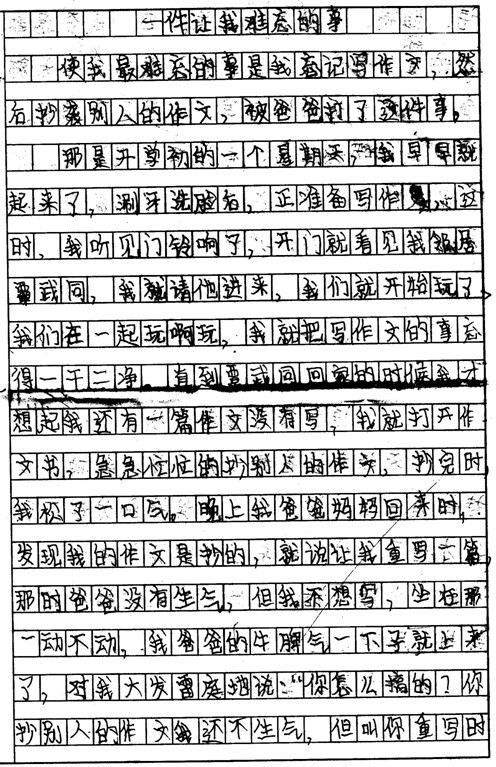 一件让我难忘的事
使我最难忘的事是我忘记写作文，然
后抄袭别人的作文，被爸爸打了这件事。
那是开学初的一个星期天，我早早就
起来了，涮牙洗脸后，正准备写作，这
时，我听见门铃响了，开门就看见我邻居
覃武同，我就请他进来，我们就开始玩了，
我们在一起玩啊玩，我就把写作文的事忘
得一干二净。直到覃武同回家的时候我才
想起我还有一篇作文没有写，我就打开作
文书，急急忙忙的抄别人的作文，抄完时，
我松了一口气。晚上我爸爸妈妈回来时，
发现我的作文是抄的，就说让我重写一篇，
那时爸爸没有生气，但我不想写，坐在那
一动不动，我爸爸的牛脾气一下子就上来
了，对我大发雷庭地说：“你怎么搞的？你
抄别人的作文我还不生气，但叫你重写时